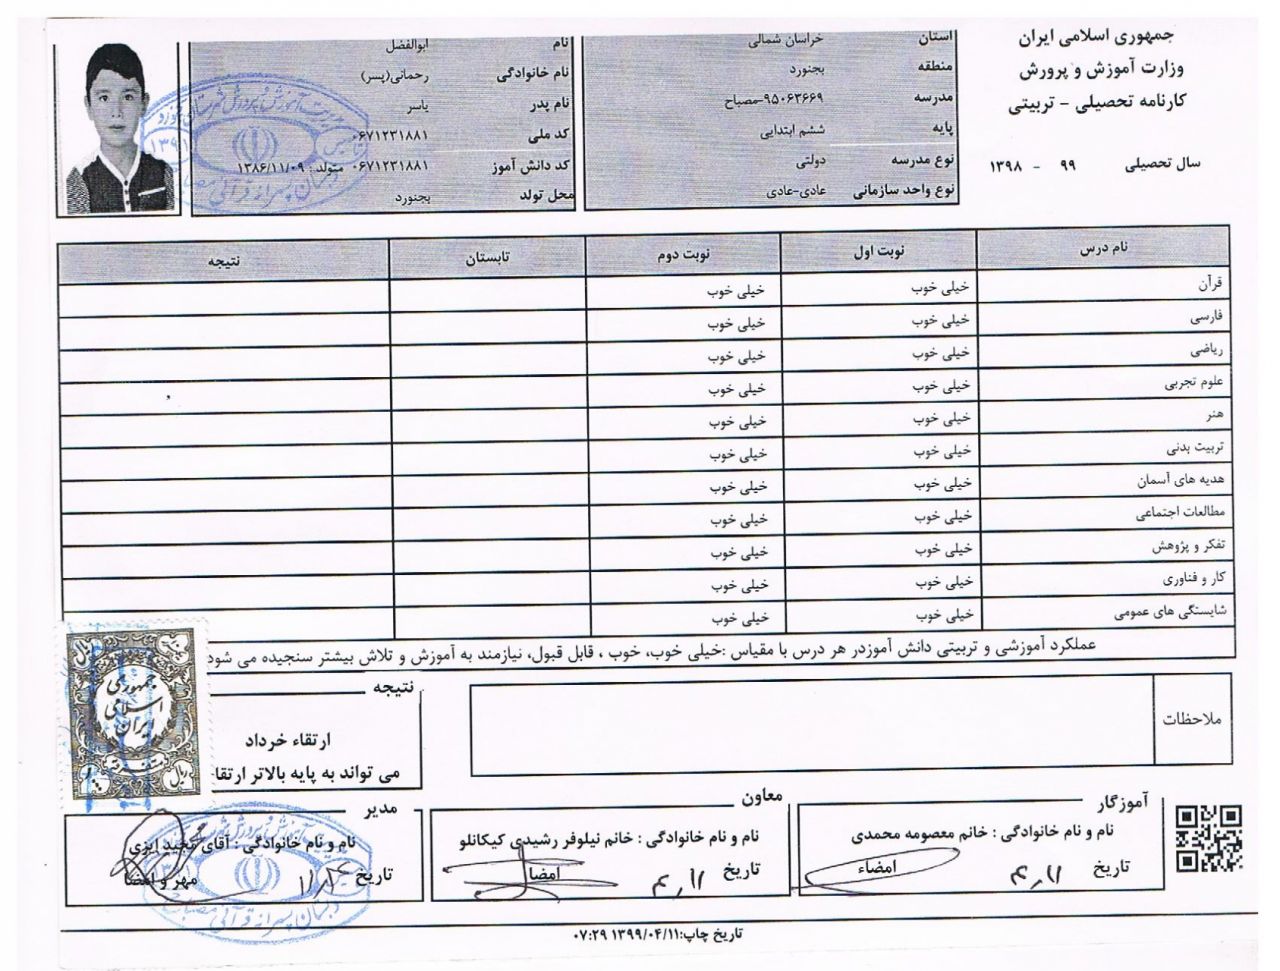 جمهوری اسلامی ایران
وزارت آموزش و پرورش
کارنامه تحصیلی - تربیتی
سال تحصیلی ۹۹ - ۱۳۹۸
استان خراسان شمالی
منطقه بجنورد
مدرسه ۹۵۰۶۳۶۶۹-مصباح
پایه ششم ابتدایی
نوع مدرسه دولتی
نوع واحد سازمانی عادی-عادی
نام ابوالفضل
نام خانوادگی رحمانی(پسر)
نام پدر یاسر
کد ملی ۰۶۷۱۲۳۱۸۸۱
کد دانش آموز ۰۶۷۱۲۳۱۸۸۱ متولد: ۱۳۸۶/۱۱/۰۹
محل تولد بجنورد
نام درس نوبت اول نوبت دوم تابستان نتیجه
قرآن خیلی خوب خیلی خوب
فارسی خیلی خوب خیلی خوب
ریاضی خیلی خوب خیلی خوب
علوم تجربی خیلی خوب خیلی خوب
هنر خیلی خوب خیلی خوب
تربیت بدنی خیلی خوب خیلی خوب
هدیه های آسمان خیلی خوب خیلی خوب
مطالعات اجتماعی خیلی خوب خیلی خوب
تفکر و پژوهش خیلی خوب خیلی خوب
کار و فناوری خیلی خوب خیلی خوب
شایستگی های عمومی خیلی خوب خیلی خوب
عملکرد آموزشی و تربیتی دانش آموزدر هر درس با مقیاس :خیلی خوب، خوب ، قابل قبول، نیازمند به آموزش و تلاش بیشتر سنجیده می شود
ملاحظات
نتیجه
ارتقاء خرداد
می تواند به پایه بالاتر ارتقا
جمهوری
اسلامی
ایران
ریال
آموزگار
نام و نام خانوادگی : خانم معصومه محمدی
تاریخ ۴٫۱۱ امضاء
معاون
نام و نام خانوادگی : خانم نیلوفر رشیدی کیکانلو
تاریخ ۴٫۱۱ امضا
مدیر
نام و نام خانوادگی : آقای مجید ایزی
تاریخ مهر و امضا
تاریخ چاپ:۱۳۹۹/۰۴/۱۱ ۰۷:۲۹